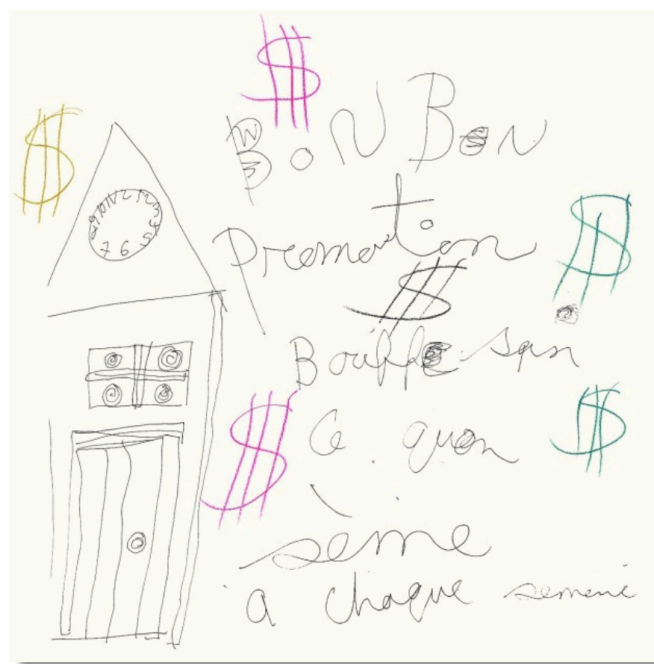 BON BON
Promotion
Bouffe sain
Ce quon
sème
a chaque semene